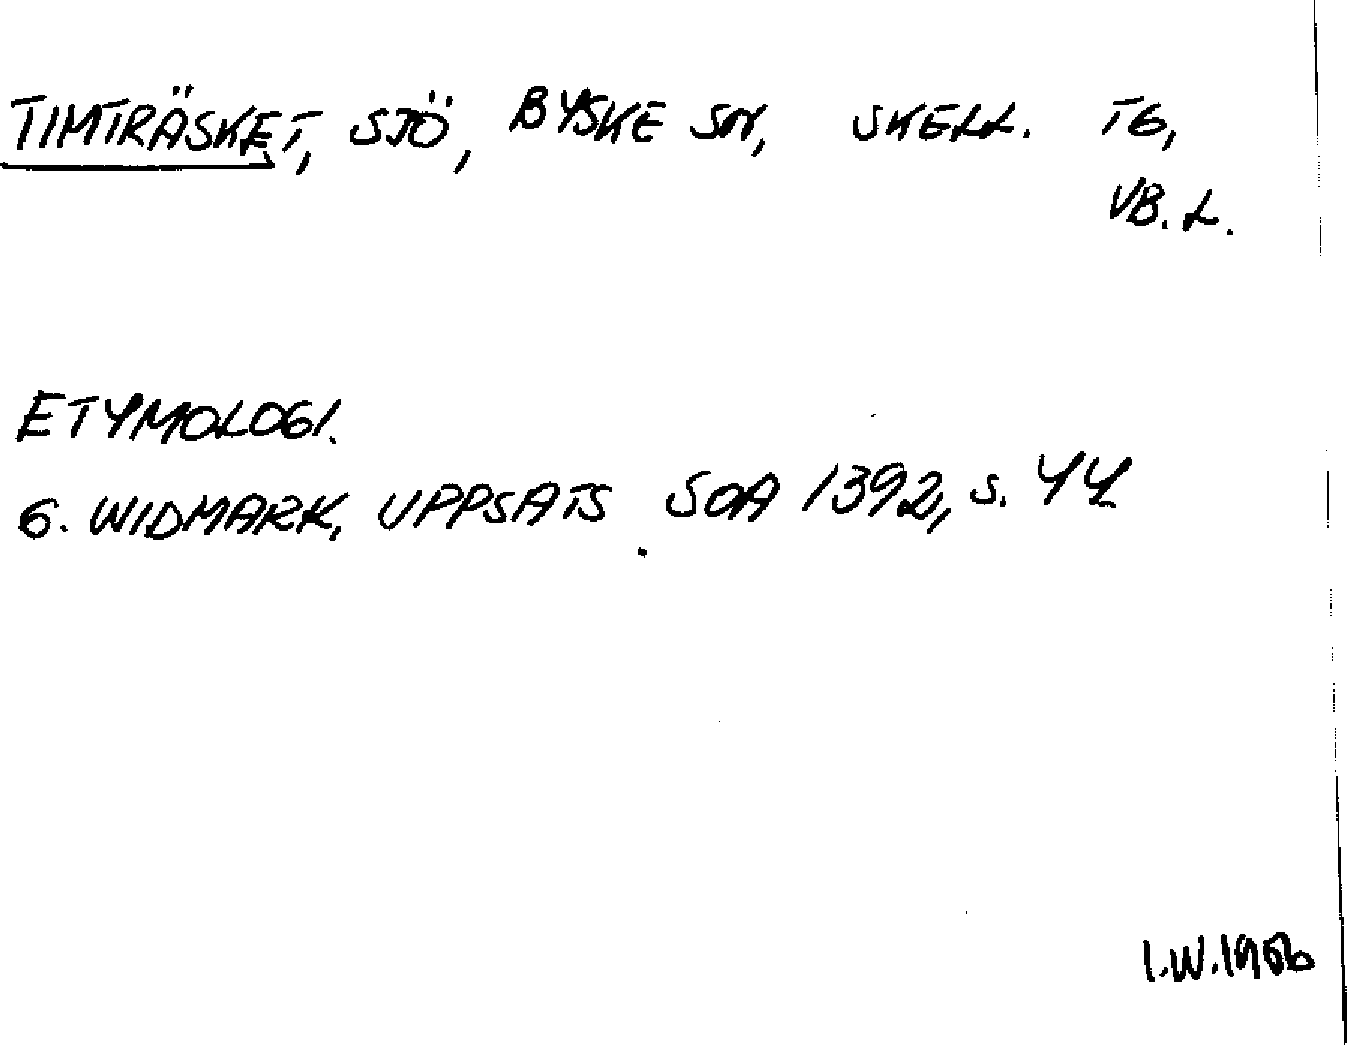 TIMTRÄSKET, SJÖ, BYSKE SN, SKELL. TG,
VB. L.
ETYMOLOGI.
G. WIDMARK, UPPSATS. SOA 1392, s. 44
I.W. 1956